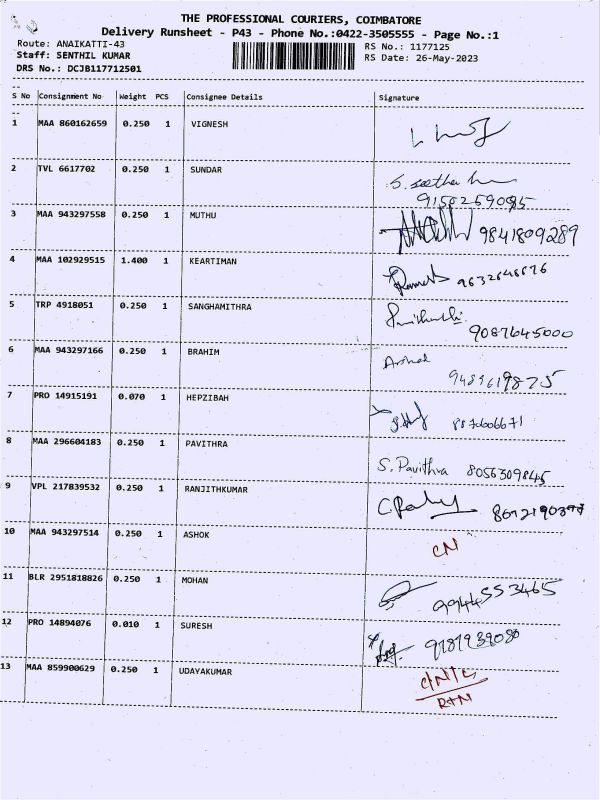 THE PROFESSIONAL COURIERS, COIMBATORE
Delivery Runsheet - P43 - Phone No.:0422-3505555 - Page No.:1
Route: ANAIKATTI-43 RS No.: 1177125
Staff: SENTHIL KUMAR RS Date: 26-May-2023
DRS No.: DCJB117712501
S No Consignment No Weight PCS Consignee Details Signature
1 MAA 860162659 0.250 1 VIGNESH
2 TVL 6617702 0.250 1 SUNDAR
3 MAA 943297558 0.250 1 MUTHU 9841809289
4 MAA 102929515 1.400 1 KEARTIMAN
5 TRP 4918051 0.250 1 SANGHAMITHRA
9087645000
6 MAA 943297166 0.250 1 BRAHIM
7 PRO 14915191 0.070 1 HEPZIBAH
8 MAA 296604183 0.250 1 PAVITHRA
S. Pavithra 8056309845
9 VPL 217839532 0.250 1 RANJITHKUMAR
10 MAA 943297514 0.250 1 ASHOK
CN
11 BLR 2951818826 0.250 1 MOHAN
9944553465
12 PRO 14894076 0.010 1 SURESH
13 MAA 859900629 0.250 1 UDAYAKUMAR